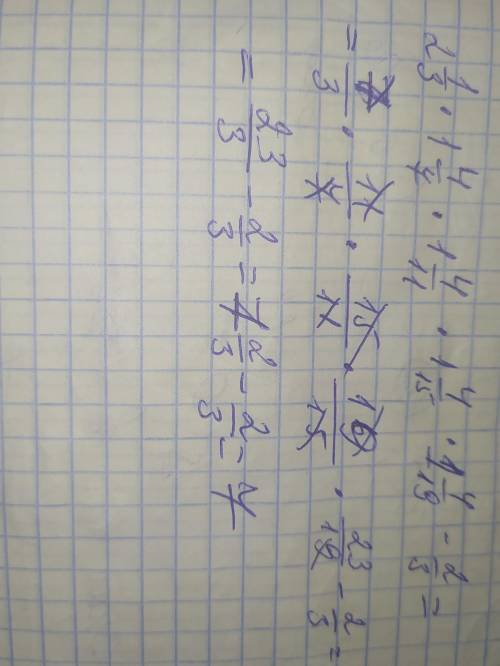 2 1/3 · 1 4/7 · 1 4/11 · 1 4/15 · 1 4/19 - 2/3 =
= 7/3 · 11/7 · 15/11 · 19/15 · 23/19 - 2/3 =
= 23/3 - 2/3 = 7 2/3 - 2/3 = 7